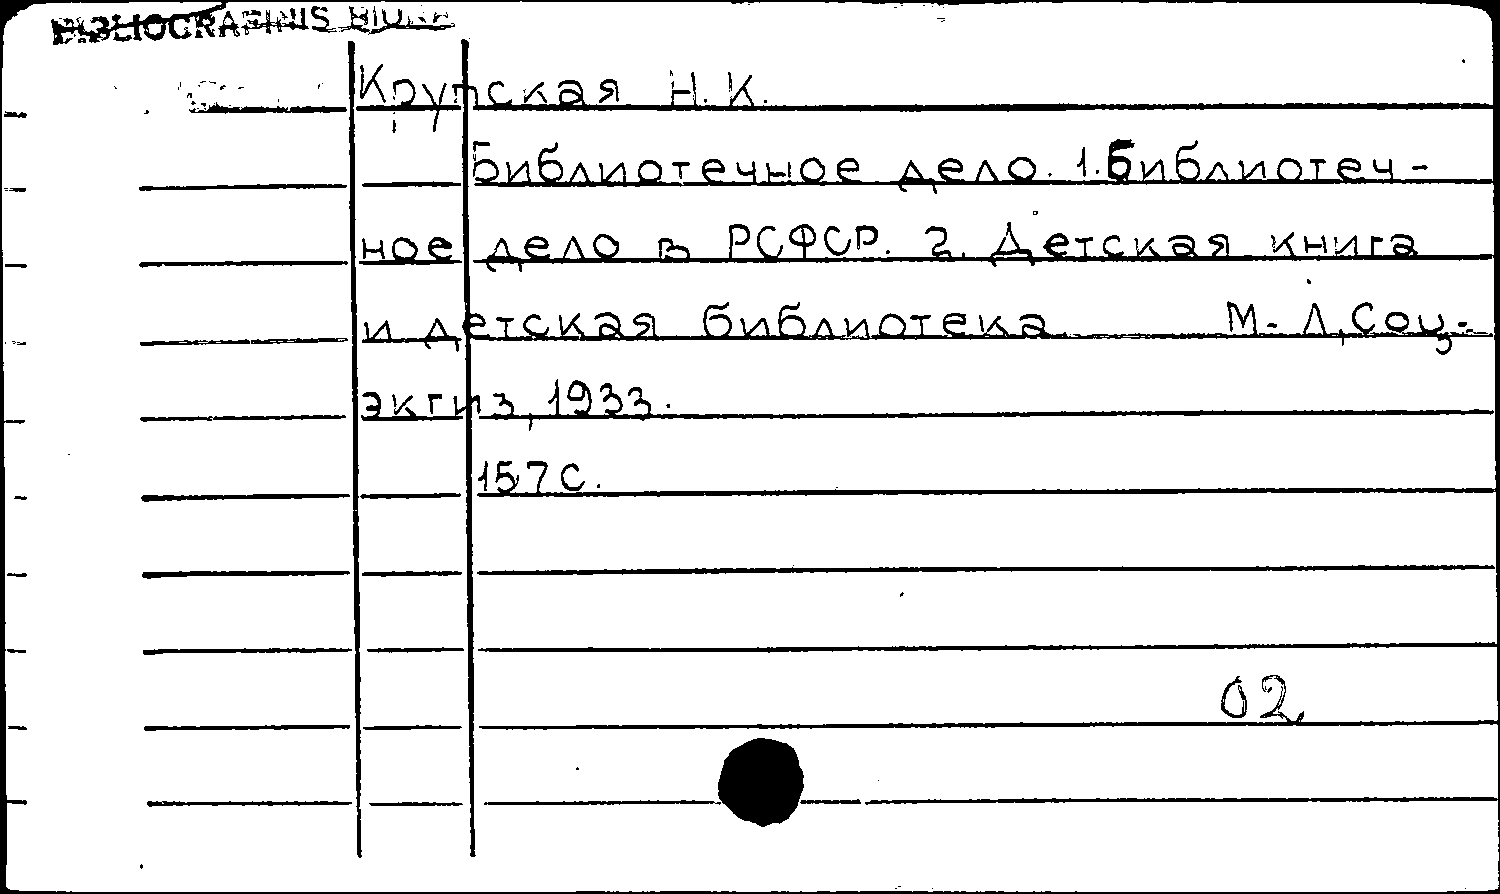 BIBLIOGRAFINIS BIURAS
Крупская Н. К.
Библиотечное дело. 1. Библиотеч-
ное дело в РСФСР. 2. Детская книга
и детская библиотека М.-Л, Соц-
экгиз, 1933.
157 с.
02